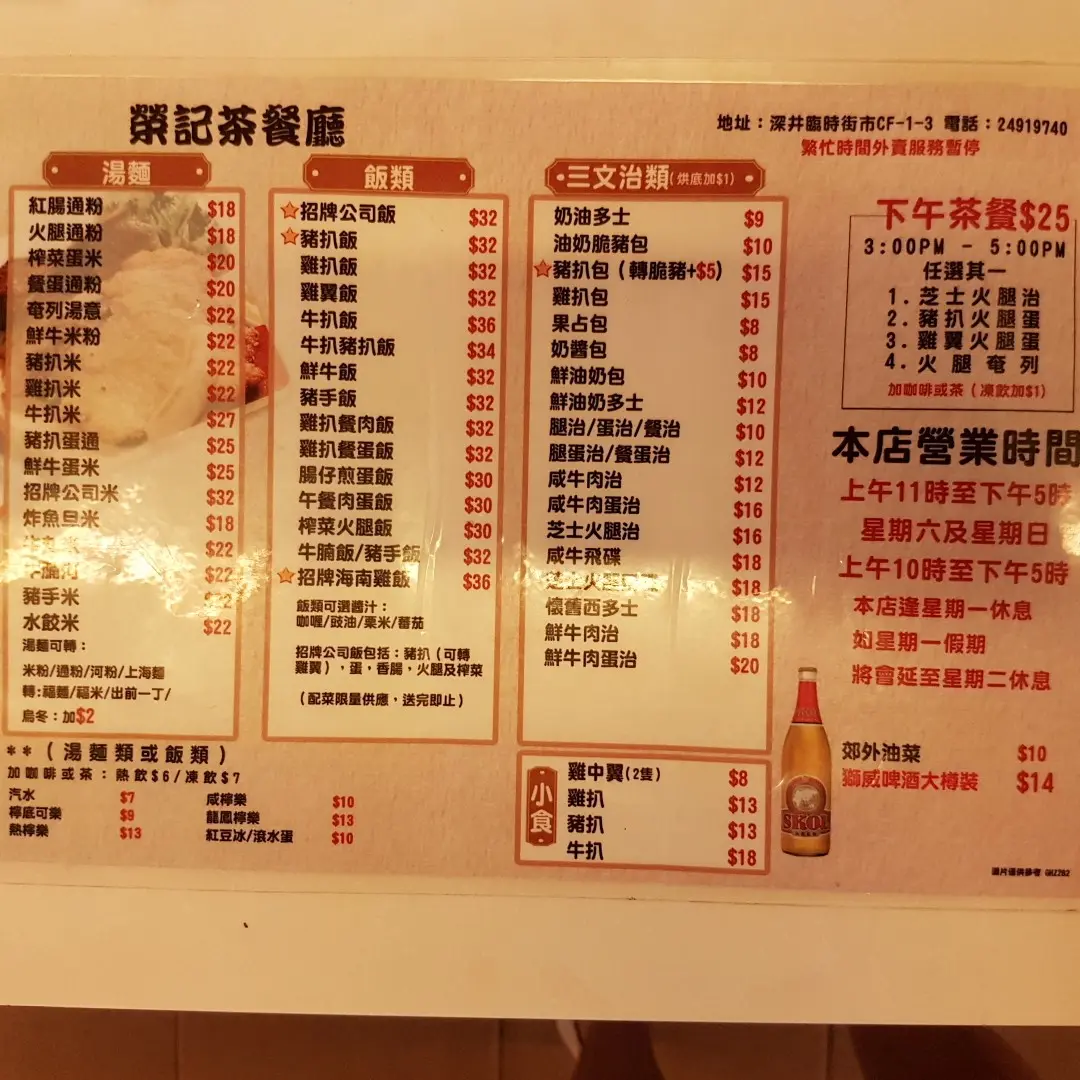 榮記茶餐廳
地址：深井臨時街市CF-1-3 電話：24919740
繁忙時間外賣服務暫停
湯麵
紅腸通粉 $18
火腿通粉 $18
榨菜蛋米 $20
餐蛋通粉 $20
奄列湯意 $22
鮮牛米粉 $22
豬扒米 $22
雞扒米 $22
牛扒米 $27
豬扒蛋通 $25
鮮牛蛋米 $25
招牌公司米 $32
炸魚旦米 $18
$22
牛腩河 $22
豬手米
水餃米 $22
湯麵可轉：
米粉/通粉/河粉/上海麵
轉:福麵/福米/出前一丁/
烏冬：加$2
飯類
招牌公司飯 $32
豬扒飯 $32
雞扒飯 $32
雞翼飯 $32
牛扒飯 $36
牛扒豬扒飯 $34
鮮牛飯 $32
豬手飯 $32
雞扒餐肉飯 $32
雞扒餐蛋飯 $32
腸仔煎蛋飯 $30
午餐肉蛋飯 $30
榨菜火腿飯 $30
牛腩飯/豬手飯 $32
招牌海南雞飯 $36
飯類可選醬汁：
咖喱/豉油/粟米/蕃茄
招牌公司飯包括：豬扒（可轉
雞翼），蛋，香腸，火腿及榨菜
（配菜限量供應，送完即止）
三文治類(烘底加$1)
奶油多士 $9
油奶脆豬包 $10
豬扒包（轉脆豬+$5） $15
雞扒包 $15
果占包 $8
奶醬包 $8
鮮油奶包 $10
鮮油奶多士 $12
腿治/蛋治/餐治 $10
腿蛋治/餐蛋治 $12
咸牛肉治 $12
咸牛肉蛋治 $16
芝士火腿治 $16
咸牛飛碟 $18
芝士火 $18
懷舊西多士 $18
鮮牛肉治 $18
鮮牛肉蛋治 $20
小食
雞中翼(2隻) $8
雞扒 $13
豬扒 $13
牛扒 $18
下午茶餐$25
3:00PM - 5:00PM
任選其一
1.芝士火腿治
2.豬扒火腿蛋
3.雞翼火腿蛋
4.火腿奄列
加咖啡或茶（凍飲加$1）
本店營業時間
上午11時至下午5時
星期六及星期日
上午10時至下午5時
本店逢星期一休息
如星期一假期
將會延至星期二休息
郊外油菜 $10
獅威啤酒大樽裝 $14
SKOL
**（湯麵類或飯類）
加咖啡或茶：熱飲$6/凍飲$7
汽水 $7
檸底可樂 $9
熱檸樂 $13
咸檸樂 $10
龍鳳檸樂 $13
紅豆冰/滾水蛋 $10
圖片僅供參考